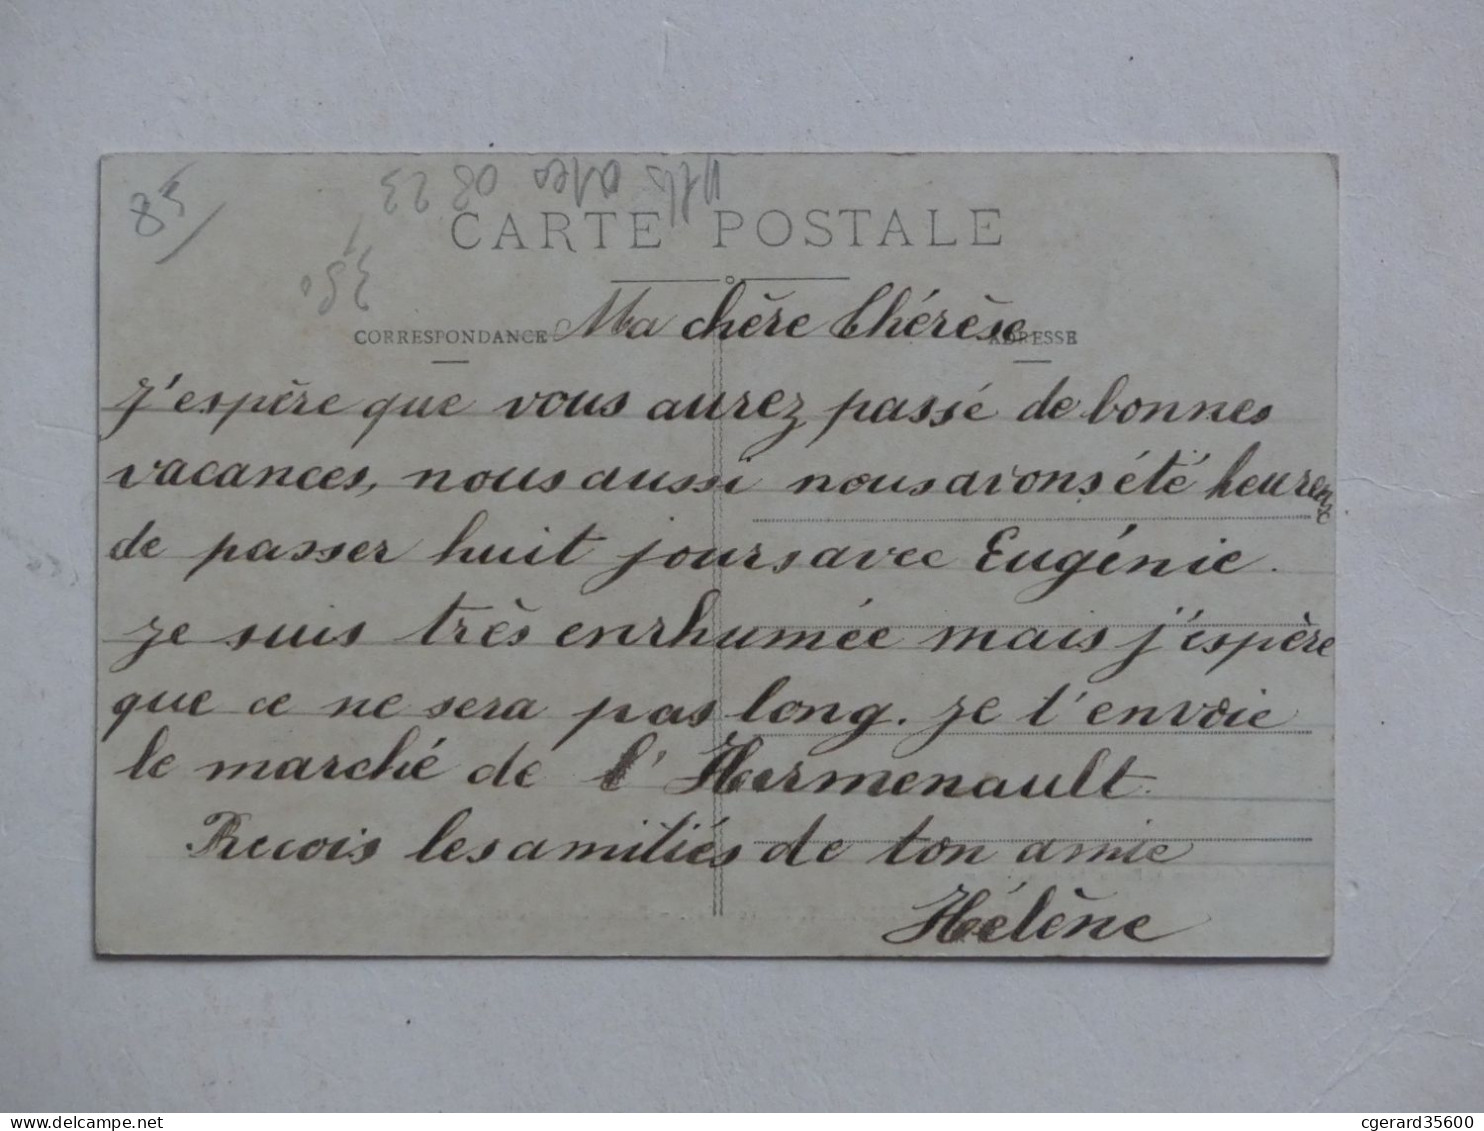 85
CARTE POSTALE
35,
CORRESPONDANCE
ADRESSE
Ma chère Thérèse
J'espère que vous aurez passé de bonnes
vacances, nous aussi nous avons été heureux
de passer huit jours avec Eugénie.
Je suis très enrhumée mais j'espère
que ce ne sera pas long. Je t'envoie
le marché de l'Hermenault.
Recois les amitiés de ton amie
Hélène
delcampe.net
cgerard35600